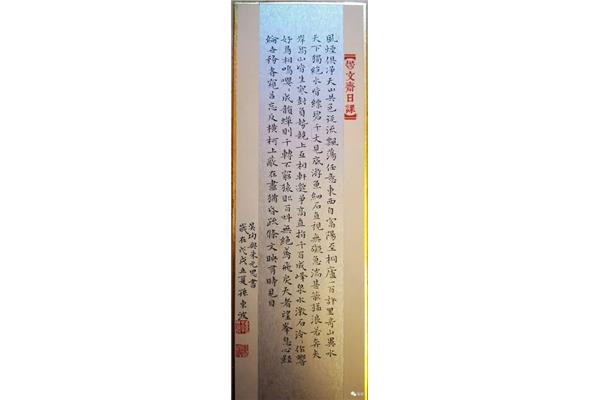 文齋日課
風煙俱淨天山共色從流飄蕩任意東西自富陽至桐廬一百許里奇山異水
天下獨絕水皆縹碧千丈見底游魚細石直視無礙急湍甚箭猛浪若奔夾
岸高山皆生寒樹負勢競上互相軒邈爭高直指千百成峰泉水激石泠〻作響
好鳥相鳴嚶〻成韻蟬則千轉不窮猿則百叫無絕鳶飛戾天者望峯息心經
綸世務者窺谷忘反橫柯上蔽在晝猶昏疏條交映有時見日
吳均與朱元思書
歲在戊戌立夏孫東波